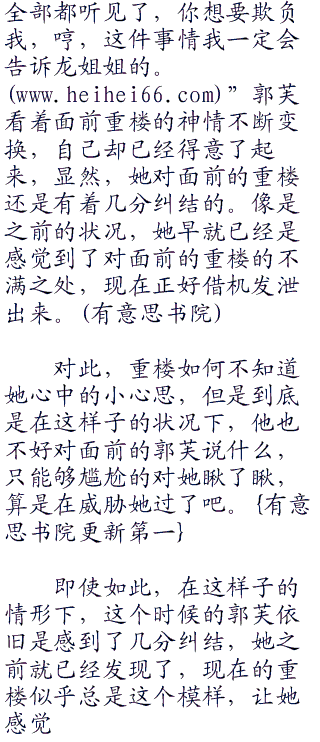 全部都听见了，你想要欺负
我，哼，这件事情我一定会
告诉龙姐姐的。
(www.heihei66.com)”郭芙
看着面前重楼的神情不断变
换，自己却已经得意了起
来，显然，她对面前的重楼
还是有着几分纠结的。像是
之前的状况，她早就已经是
感觉到了对面前的重楼的不
满之处，现在正好借机发泄
出来。(有意思书院)
对此，重楼如何不知道
她心中的小心思，但是到底
是在这样子的状况下，他也
不好对面前的郭芙说什么，
只能够尴尬的对她瞅了瞅，
算是在威胁她过了吧。{有意
思书院更新第一}
即使如此，在这样子的
情形下，这个时候的郭芙依
旧是感到了几分纠结，她之
前就已经发现了，现在的重
楼似乎总是这个模样，让她
感觉